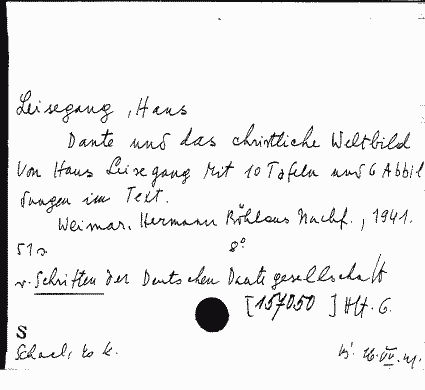 Leisegang, Hans
Dante und das christliche Weltbild
Von Hans Leisegang Mit 10 Tafeln und 6 Abbil
dungen im Text.
Weimar. Hermann Böhlaus Nachf., 1941.
51 s 8°
v. Schriften der Deutschen Dantegesellschaft
[157050] Hft. 6.
S